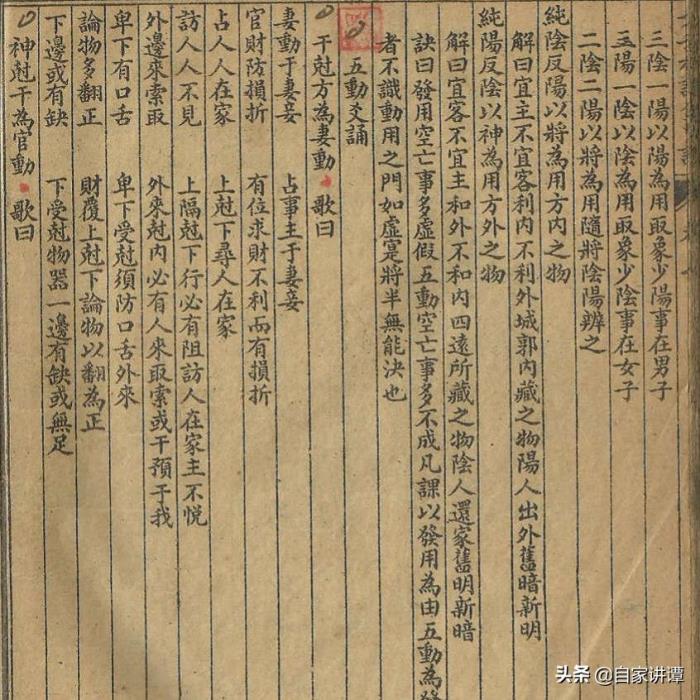 三陰一陽以陽為用取象少陽事在男子
三陽一陰以陰為用取象少陰事在女子
二陰二陽以將為用隨將陰陽辨之
純陰反陽以將為用方內之物
解曰宜主不宜客利內不利外城郭內藏之物陽人出外舊暗新明
純陽反陰以神為用方外之物
解曰宜客不宜主和外不和內四遠所藏之物陰人還家舊明新暗
訣曰發用空亡事多虛假五動空亡事多不成凡課以發用為由五動為發
者不識動用之門如虛寔將半無能決也
五動爻誦
干尅方為妻動 歌曰
妻動于妻妾 占事主于妻妾
官財防損折 有位求財不利而有損折
占人人在家 上尅下尋人在家
訪人人不見 上隔尅下行必有阻訪人在家主不悅
外邊來索取 外來尅內必有人來取索或干預于我
卑下有口舌 卑下受尅須防口舌外來
論物多翻正 財覆上尅下論物以翻為正
下邊或有缺 下受尅物器一邊有缺或無足
神尅干為官動 歌曰
头条 @自家讲谭